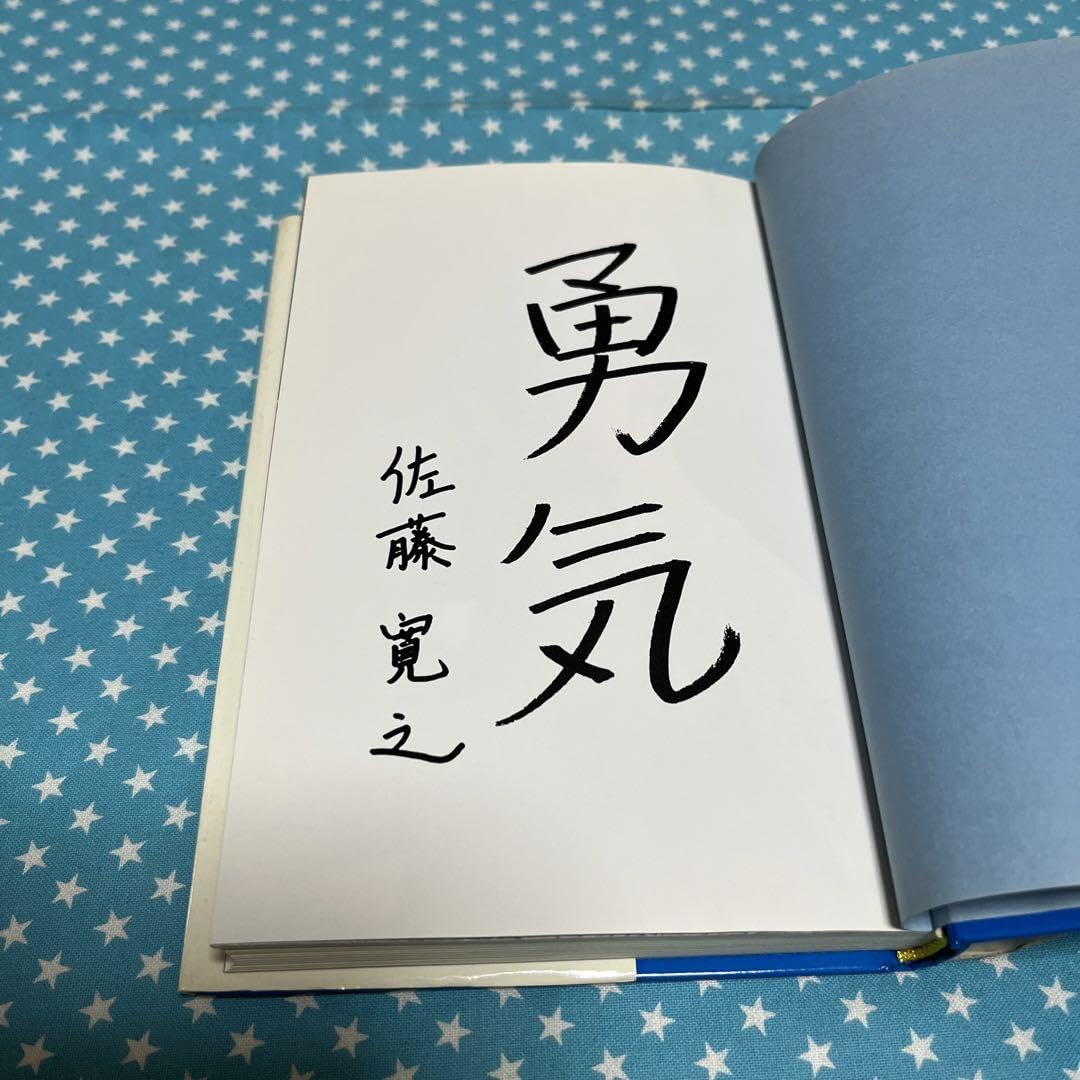 勇気
佐藤寛之